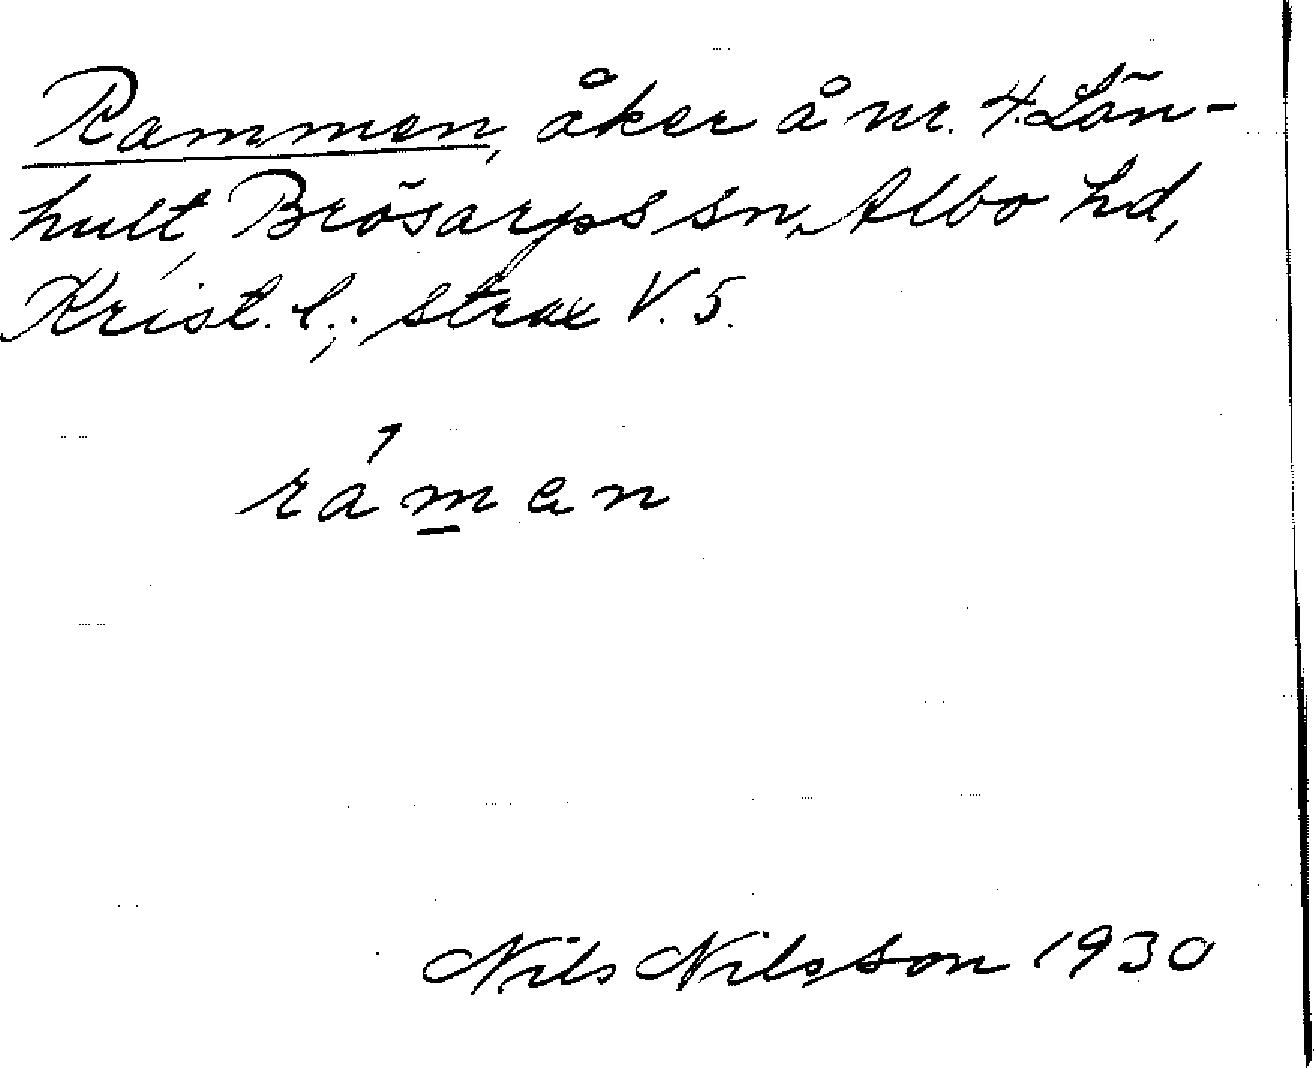 Rammen, åker å nr. 4 Lön-
hult, Brösarps sn, Albo hd,
Krist. l.; strax V. 5.
råmen
Nils Nilsson 1930